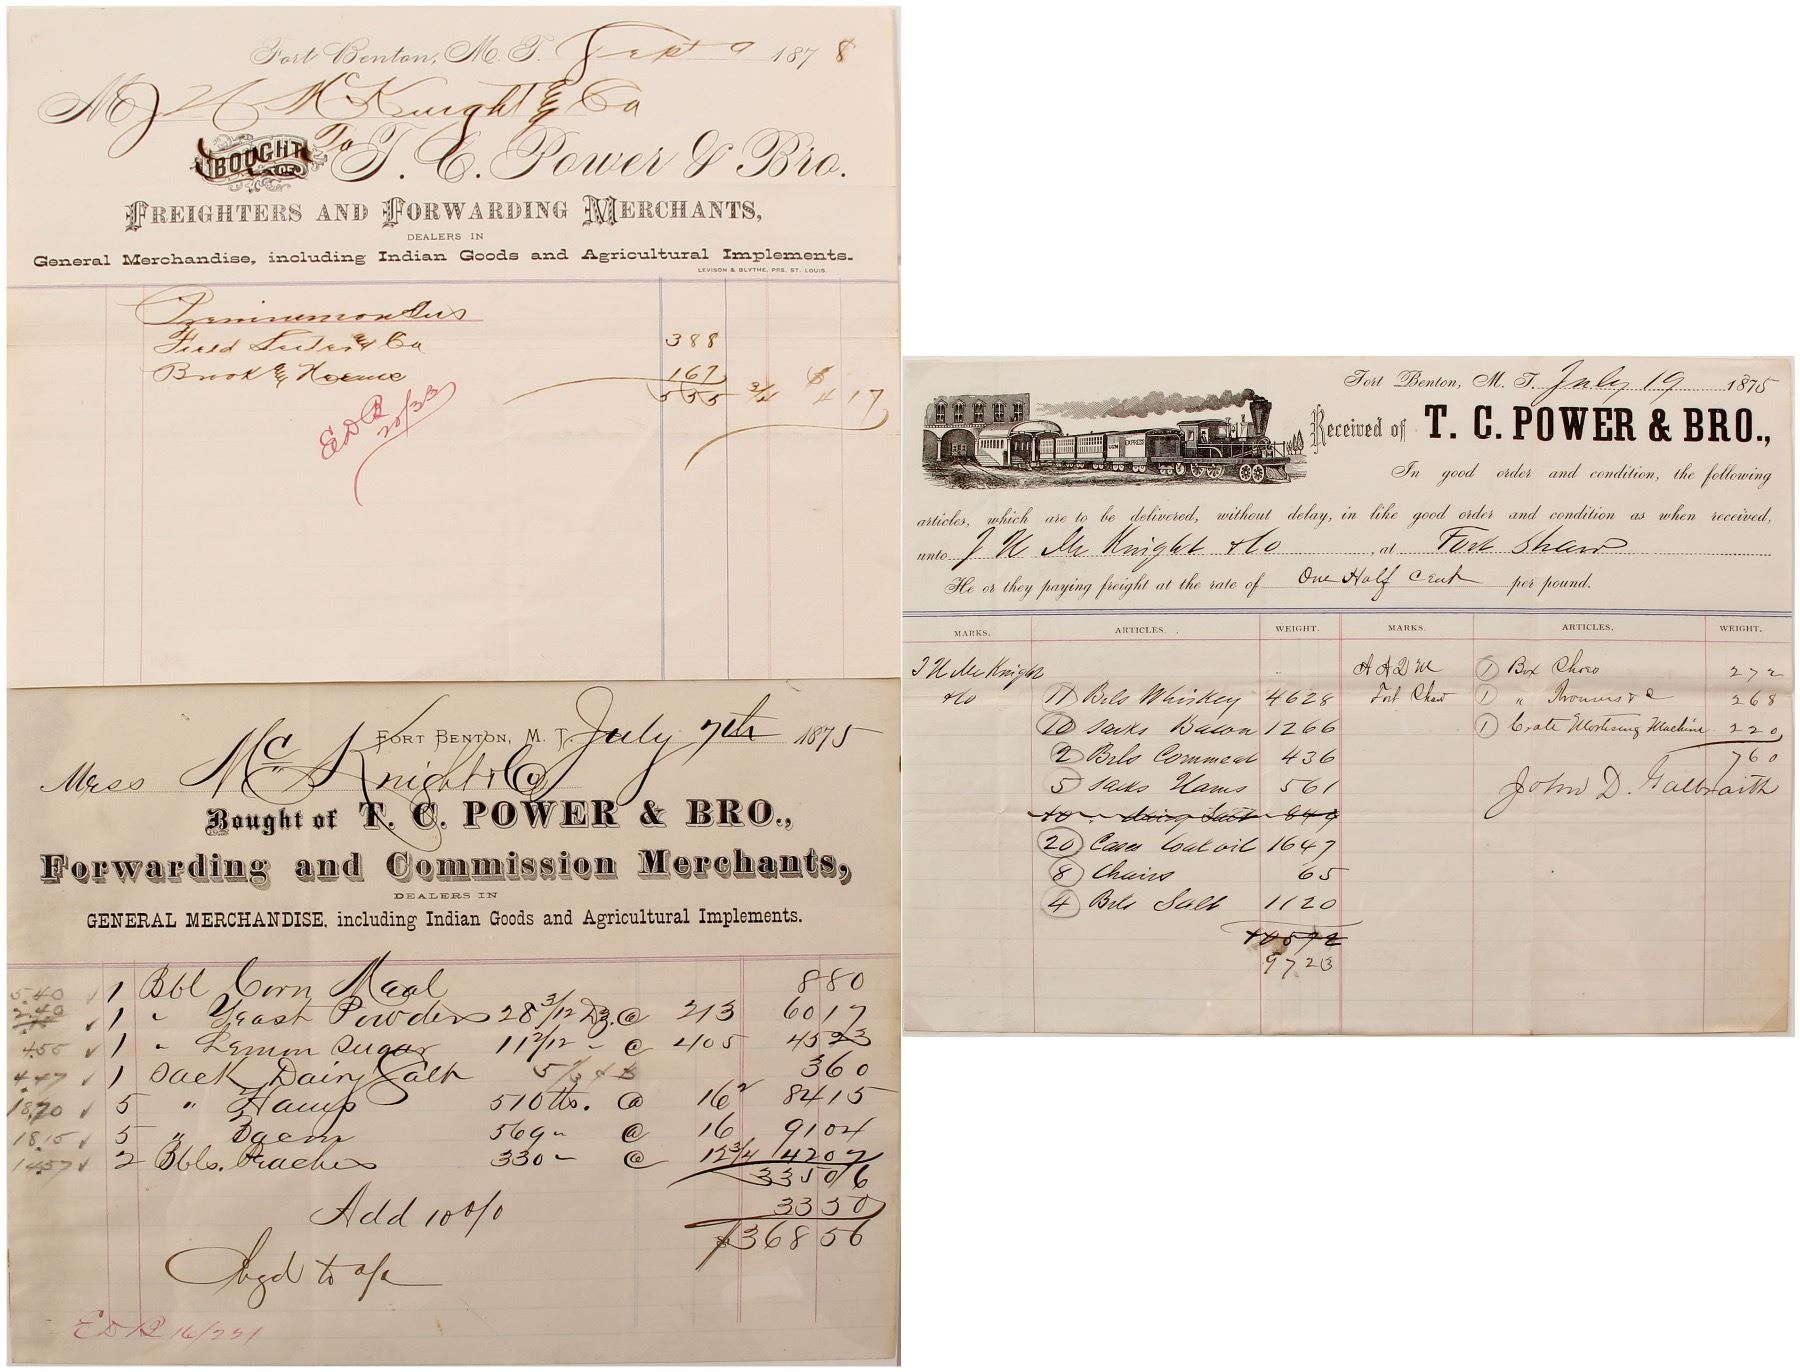 Fort Benton, M. T. Sept 9 1878
M J H McKnight & Co
BOUGHT OF To T. C. Power & Bro.
FREIGHTERS AND FORWARDING MERCHANTS,
DEALERS IN
General Merchandise, including Indian Goods and Agricultural Implements.
LEVISON & BLYTHE, PRS. ST. LOUIS.
Field & Co 388
167
555 3/4 $ 4 17
EDB
20/33
FORT BENTON, M. T. July 7th 1875
Mess McKnight & Co
Bought of T. C. POWER & BRO.,
Forwarding and Commission Merchants,
DEALERS IN
GENERAL MERCHANDISE, including Indian Goods and Agricultural Implements.
5.40 1 Bbl Corn Meal 8 80
2.40 1 " Yeast Powders 28 3/12 Dz. @ 213 60 17
4.55 1 " Lemon Sugar 11 2/12 " @ 405 45 23
4.47 1 Sack Dairy Salt 3 60
18.70 5 " Hams 510 lbs. @ 16 2 84 15
18.15 5 " Bacon 569 " @ 16 91 04
14.57 2 Bbls. Peaches 330 " @ 12 3/4 42 07
335 06
Add 10 o/o 33 50
$368 56
Chgd to a/c
EDB 16/221
Fort Benton, M. T. July 19 1875
Received of T. C. POWER & BRO.,
In good order and condition, the following
articles, which are to be delivered, without delay, in like good order and condition as when received,
unto J H McKnight & Co , at Fort Shaw
He or they paying freight at the rate of One Half Cent per pound.
UNION EXPRESS
MARKS. ARTICLES. WEIGHT. MARKS. ARTICLES. WEIGHT.
J H McKnight A A Q M 1 Box 272
& Co 11 Brls Whiskey 4628 Fort Shaw 1 " 268
10 Sacks Bacon 1266 1 Crate Mortising Machine 220
2 Brls Cornmeal 436 760
5 Sacks Hams 561 John D. Galbraith
10 Dairy Salt 849
20 Cases Coal oil 1647
8 Chairs 65
4 Brls Salt 1120
10572
9723